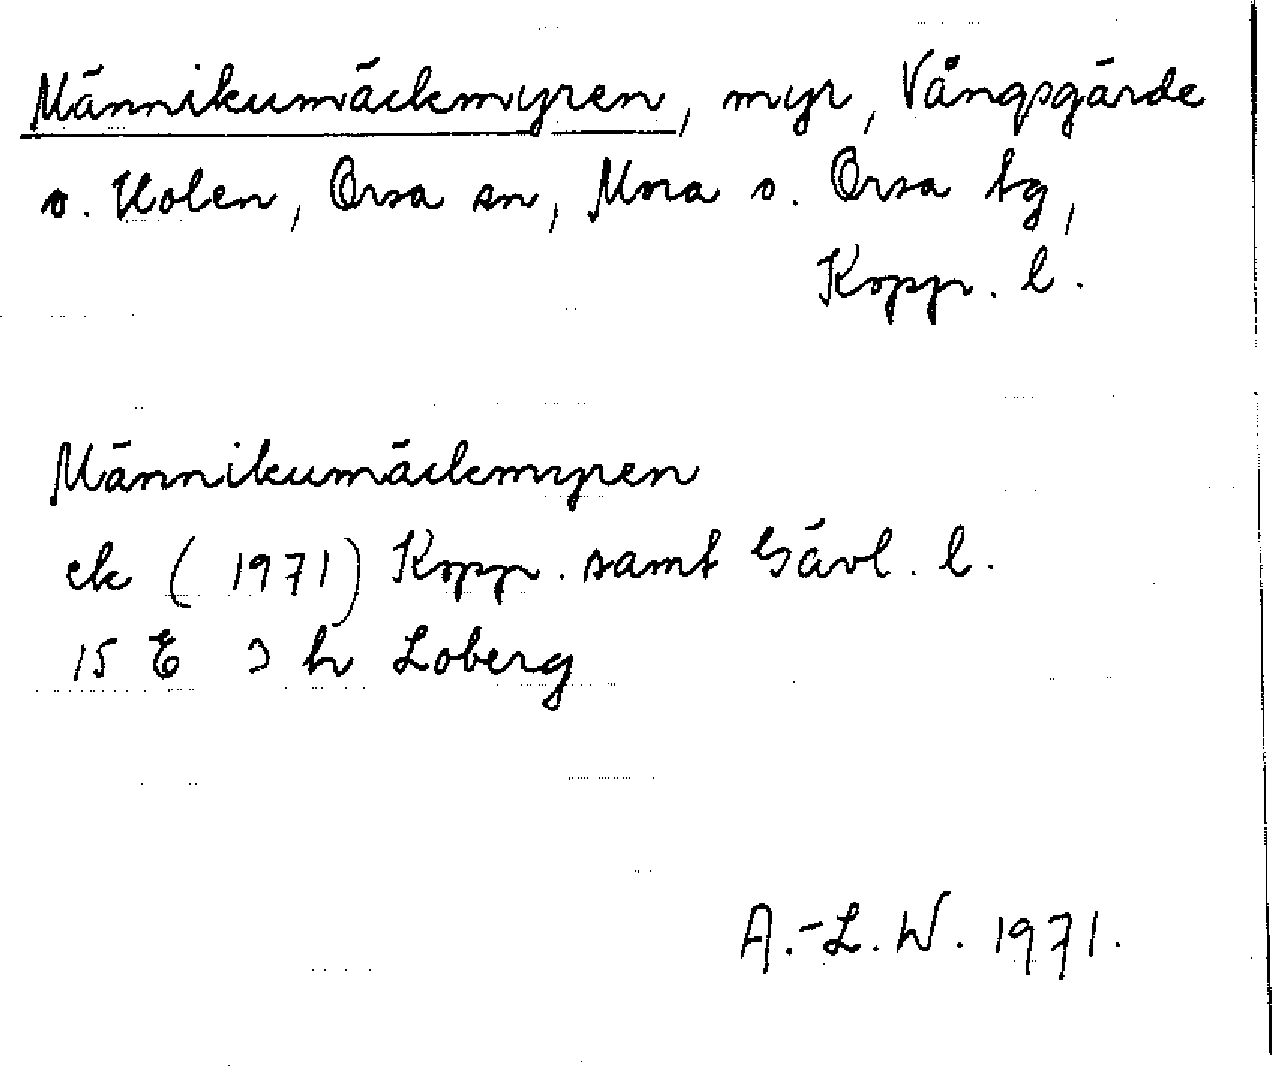 Männikumäckmyren, myr, Vångsgärde
o. Holen, Orsa sn, Mora o. Orsa tg,
Kopp. l.
Männikumäckmyren
ek (1971) Kopp. samt Gävl. l.
15 E 3 h Loberg
A.-L. W. 1971.